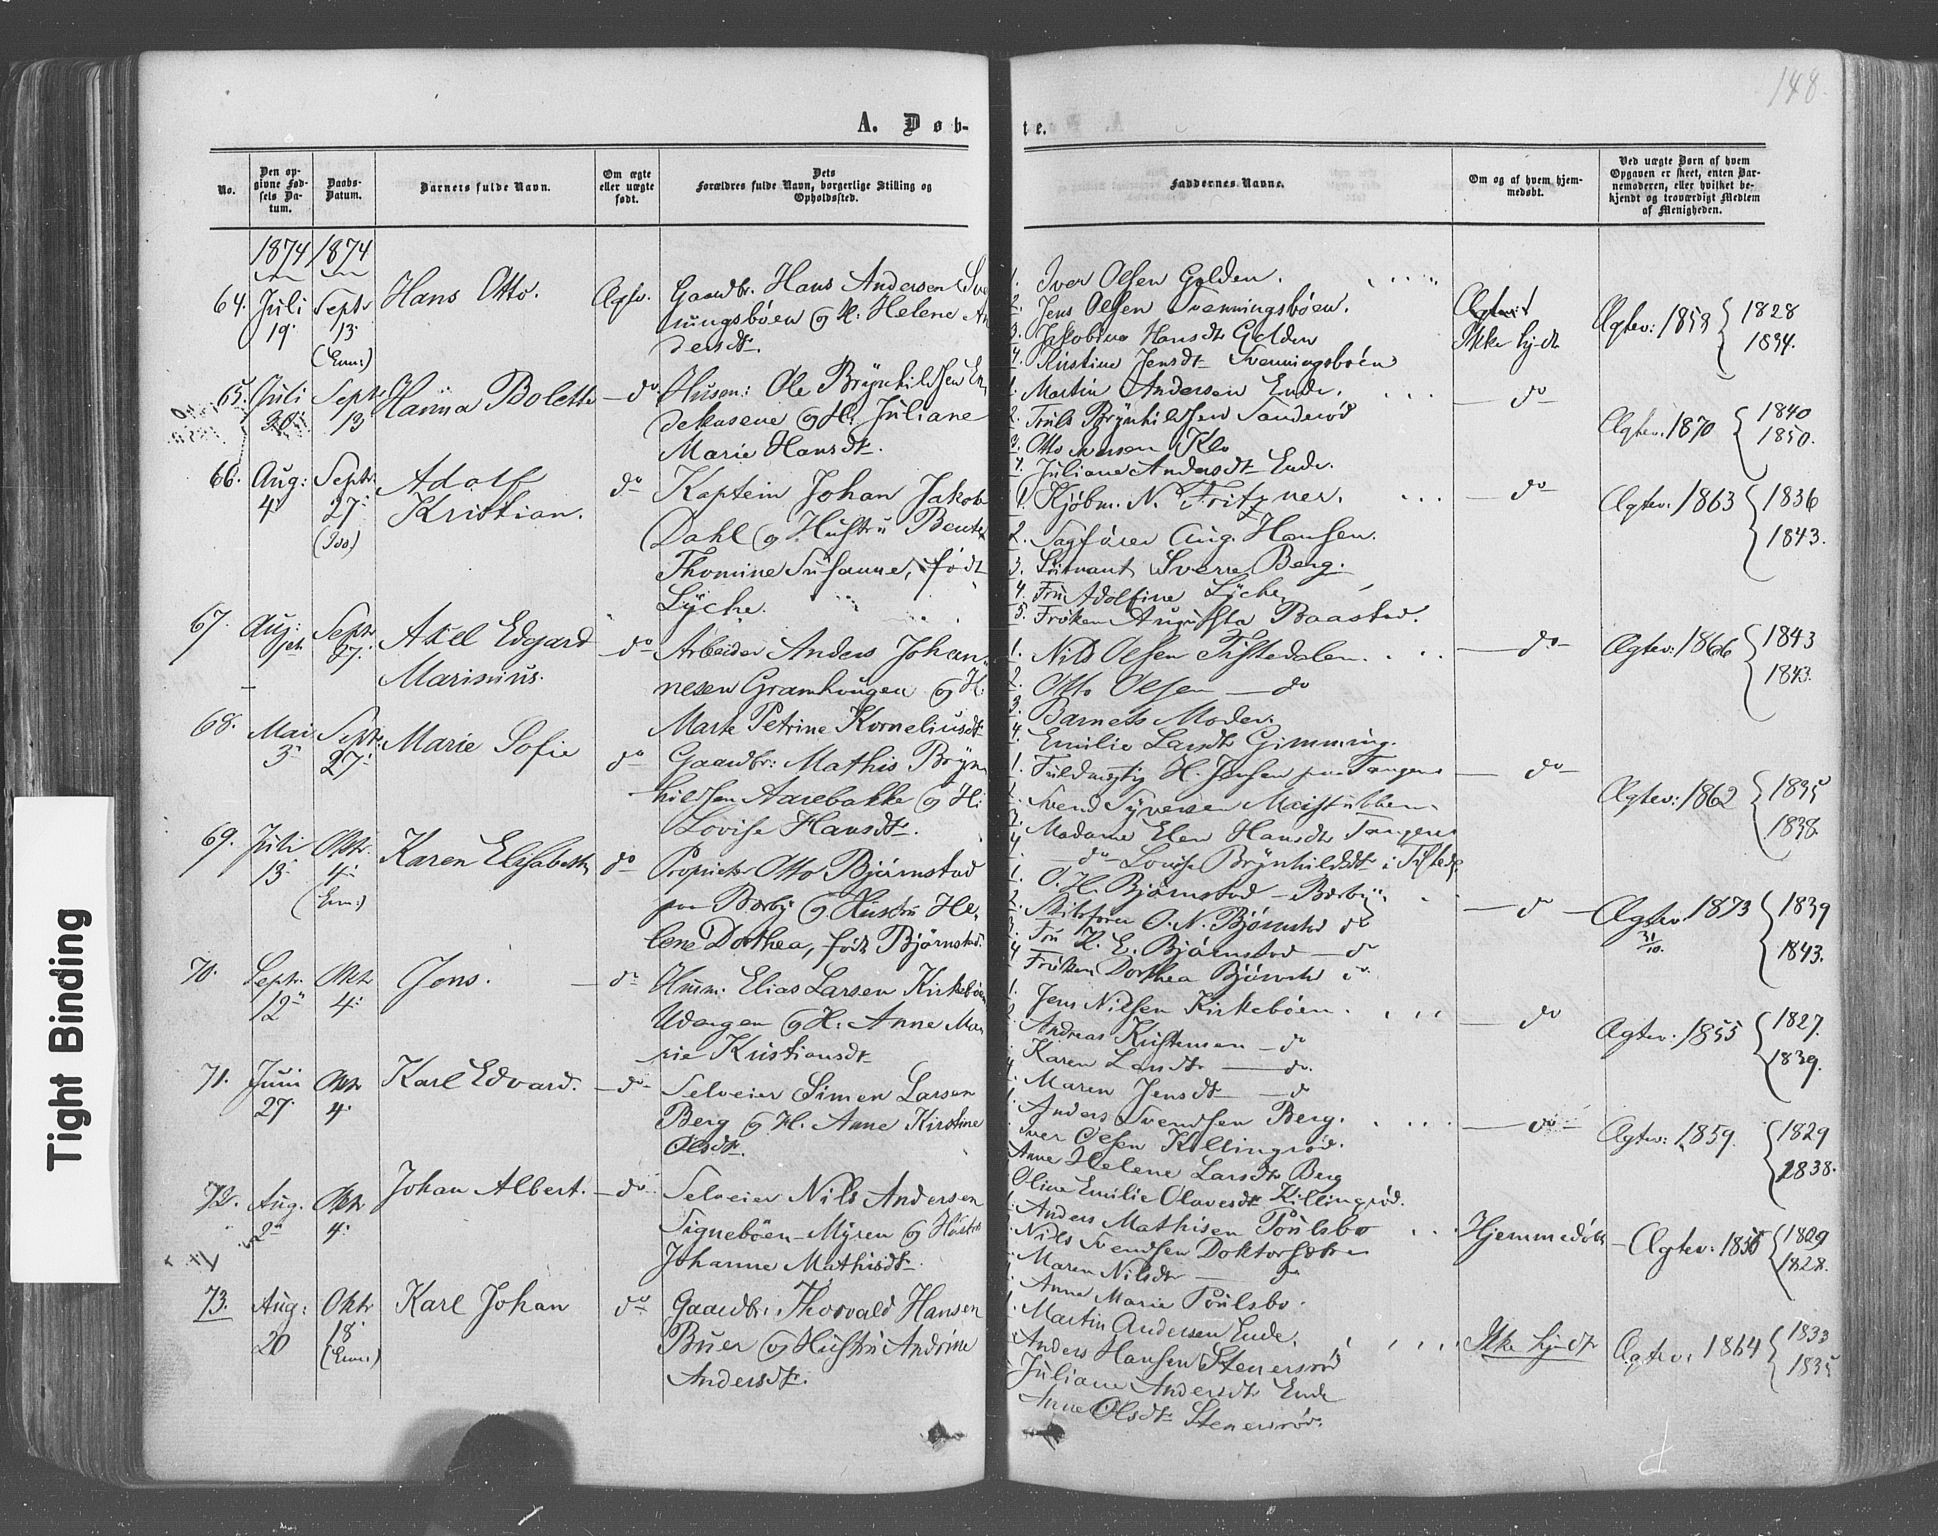 148.
A. Døb-
te.
No.
Den op-
givne Fød-
sels Da-
tum.
Daabs-
Datum.
Barnets fulde Navn.
Om ægte
eller uægte
født.
Dets
Forældres fulde Navn, borgerlige Stilling og
Opholdssted.
Faddernes Navne.
Om og af hvem hjem-
medøbt.
Ved uægte Børn af hvem
Opgaven er skeet, enten Bar-
nemoderen, eller hvilket be-
kjendt og troværdigt Medlem
af Menigheden.
1874 1874
64. Juli 19. Septr 13. (Enn:) Hans Otto.
Gaardbr. Hans Andersen
ningsbøen og H. Helene
dersdtr.
1. Iver Olsen Golden.
2. Jens Olsen Svenningsbøen.
3. Jakobine Hansdtr Golden
4. Kristine Jensdtr Svenningsbøen
Ikke hjdt
Ægtev: 1853 { 1828
1834.
65. Juli 20 Septr 13 Hanna Bolette do
Husm: Ole Brynhildsen En-
dekasene og H. Juliane
Marie Hansdtr.
1. Martin Andersen Ende.
2. Truls Brynhildsen Sanderød
3. Otto Klo
4. Juliane Andersdtr Ende.
do
Ægtev. 1870 { 1840
1850.
66. Aug: 4. Septr. 27. Adolf
Kristian. do
Kaptein Johan Jakob
Dahl og Hustru Bente
Thomine Susanne, født
Lyche.
1. Kjøbm. N. Fritzner.
2. Sagfører Aug. Hansen.
3. Sverre Berg.
4. Fru Adolfine Lyche
5. Frøken Augusta Baastad.
do
Ægtev. 1863 { 1836
1843.
67. Aug: Septr 27. Axel Edgard
Marinius. do
Arbeider Anders Johan-
nesen Gramhougen og H.
Marte Petrine Korneliusdtr
1. Nils Olsen Tistedalen.
2. Otto Olsen do
3. Barnets Moder.
4. Emilie Larsdtr Gimming.
do
Ægtev. 1866 { 1843
1843.
68. Mai 3. Septr. 27. Marie Sofie do
Gaardbr: Mathis Bryn-
hildsen Aarebakke og H:
Lovise Hansdtr.
1. Fuldmægtig H. Jensen paa Tangen
Svend Syversen
Madame Elen Hansdtr Tangen
do Lovise Brynhildsdtr i Tistedl.
do
Ægtev: 1862 { 1835
1838.
69. Juli 13. Oktr. 4. (Enn:) Karen Elisabeth do
Proprietær Otto Bjørnstad
paa Berby og Hustru He-
lene Dorthea, født Bjørnstad.
1. O. H. Bjørnstad Berby
2. O. N. Bjørnstad do
3. Fru H. E. Bjørnstad do
4. Frøken Dorthea Bjørnstad do
do
Ægtev. 1873 { 1839
31/10. 1843.
70. Septr. 12. Oktr 4. Jens. do
Husm. Elias Larsen Kirkebøen
Udengen og H. Anne Ma-
rie Kristiansdtr
1. Jens Nilsen Kirkebøen.
Andreas Kristensen do
Karen Larsdtr do.
Maren Jensdtr do
do
Ægtev. 1855 { 1827.
1839.
71. Juni 27. Oktr 4. Karl Edvard. do
Selveier Simen Larsen
Berg og H. Anne Kirstine
Olsdtr.
Anders Svendsen Berg.
Iver Olsen Killingrød.
Anne Helene Larsdtr Berg
Oline Emilie Olavesdtr Killingrød.
do
Ægtev: 1859. { 1829
1838.
72. Aug. 2. Oktr 4. Johan Albert. do
Selveier Nils Andersen
Signebøen Myren og Hustru
Johanne Mathisdtr.
Anders Mathisen Poulsbo
Nils Svendsen
Maren Nilsdtr do
Anne Marie Poulsbo.
Hjemmedøbt
Ægtev: 1855 { 1829
1828.
73. Aug: 20 Oktr 18. (Enn:) Karl Johan do
Gaardbr. Thorvald Hansen
Buer og Hustru Andrine
Andersdtr.
Martin Andersen Ende.
Anders Hansen Stenersrød
Juliane Andersdtr Ende
Anne Olsdtr Stenersrød.
Ikke hjdt
Ægtev: 1864 { 1833
1835
Tight Binding